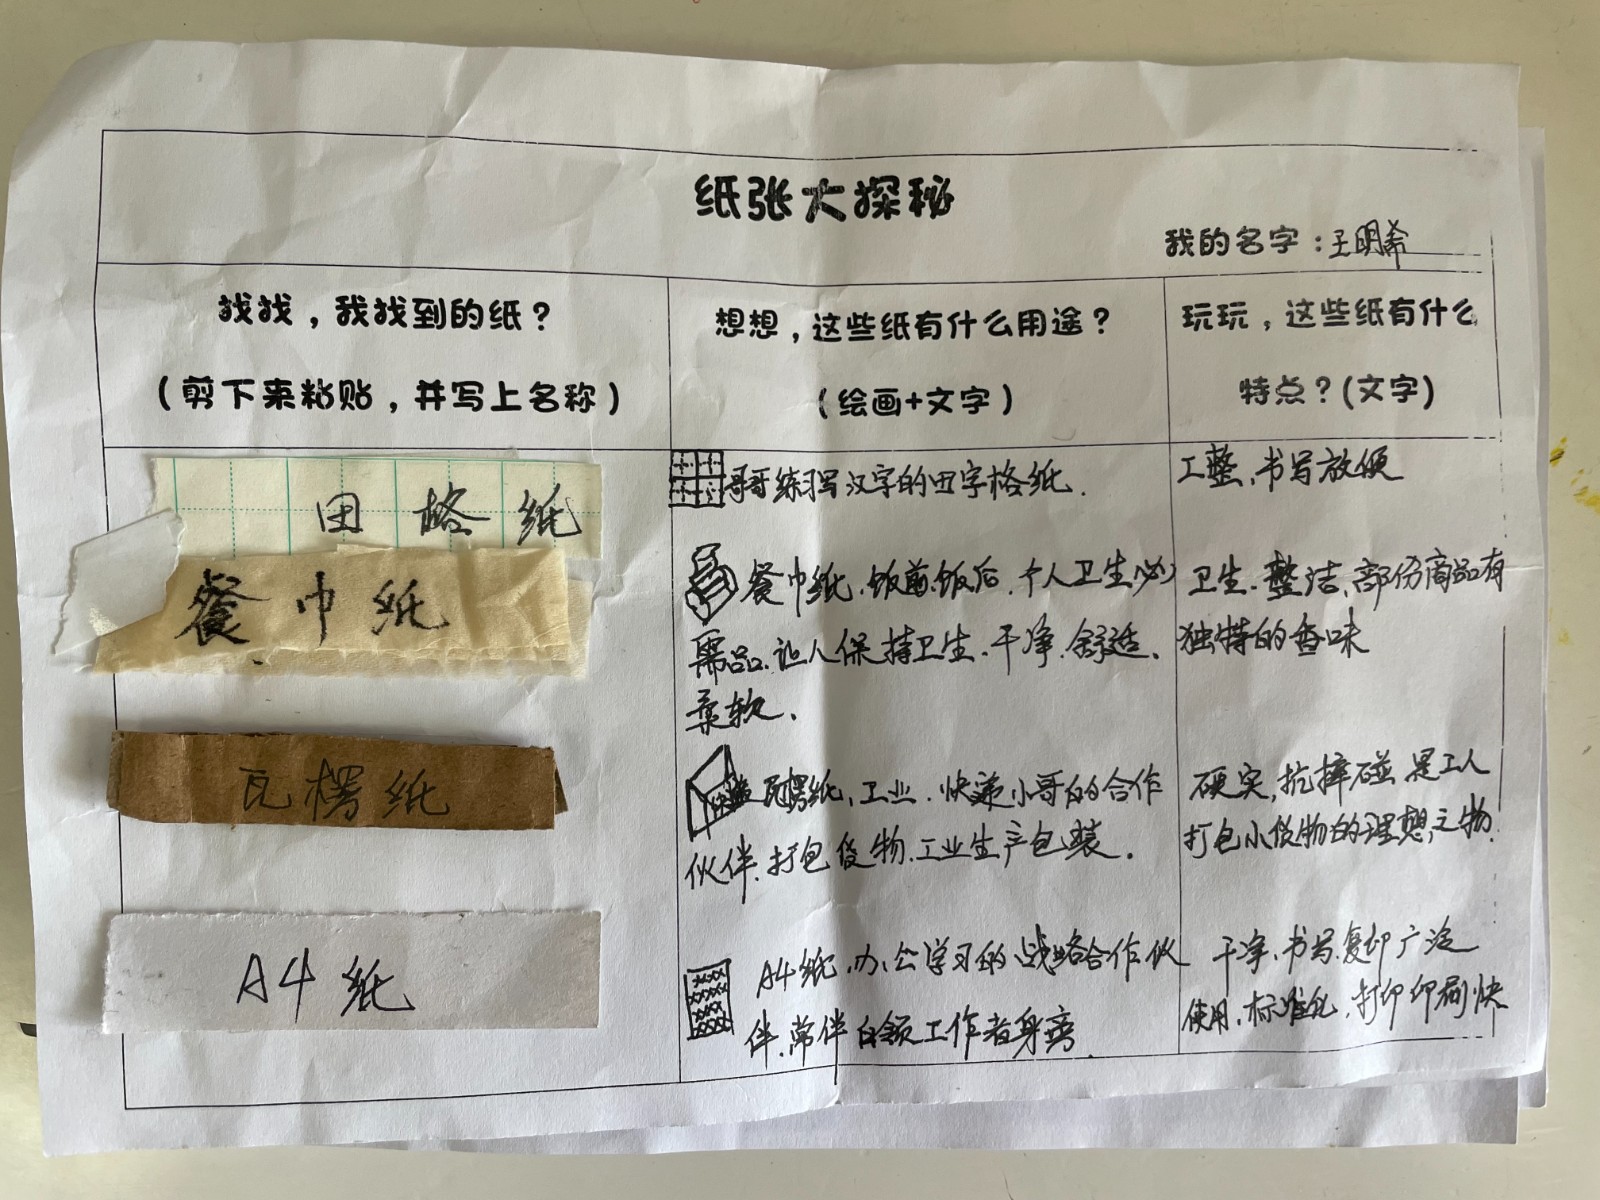 纸张大探秘
我的名字：王明希
找找，我找到的纸？
（剪下来粘贴，并写上名称）
想想，这些纸有什么用途？
（绘画+文字）
玩玩，这些纸有什么
特点？(文字)
田格纸
哥哥练习写汉字的田字格纸.
工整、书写放便
餐巾纸
餐巾纸、饭前、饭后、个人卫生必
需品、让人保持卫生、干净、舒适、
柔软.
卫生、整洁、部份商品有
独特的香味
瓦楞纸
瓦楞纸、工业、快递小哥的合作
伙伴、打包货物、工业生产包装.
硬实,抗摔碰 是工人
打包小货物的理想之物.
A4纸
A4纸、办公学习的战略合作伙
伴、常伴白领工作者身旁.
干净、书写、复印广泛
使用、标准化、打印印刷快